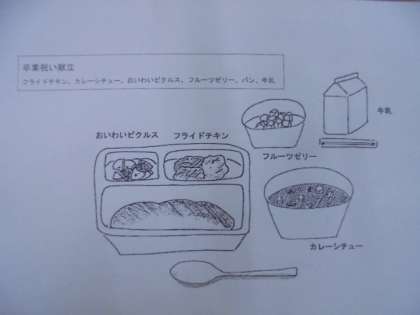 卒業祝い献立
フライドチキン、カレーシチュー、おいわいピクルス、フルーツゼリー、パン、牛乳
おいわいピクルス
フライドチキン
フルーツゼリー
牛乳
カレーシチュー